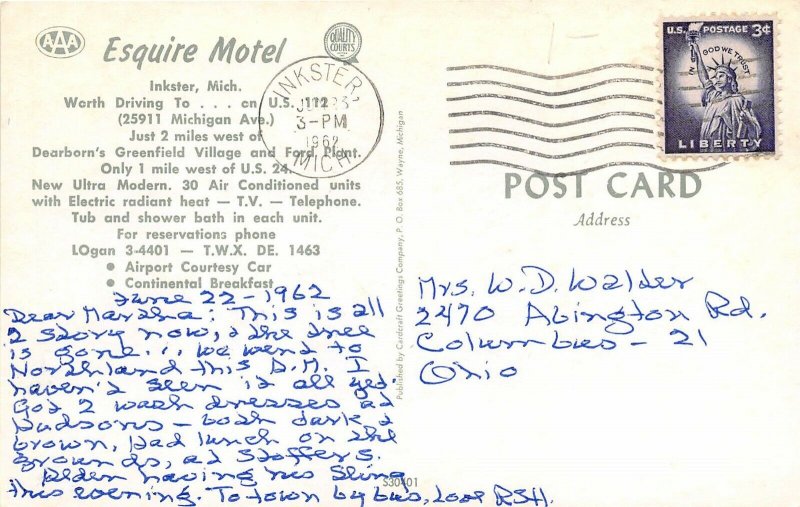 AAA
Esquire Motel
QUALITY COURTS
Inkster, Mich.
Worth Driving To . . . on U.S. 112
(25911 Michigan Ave.)
Just 2 miles west of
Dearborn's Greenfield Village and Ford Plant.
Only 1 mile west of U.S. 24.
New Ultra Modern. 30 Air Conditioned units
with Electric radiant heat — T.V. — Telephone.
Tub and shower bath in each unit.
For reservations phone
LOgan 3-4401 — T.W.X. DE. 1463
• Airport Courtesy Car
• Continental Breakfast
June 22-1962
Dear Martha: This is all
2 story now, & the tree
is gone... We went to
Northland this P.M. I
haven't seen it all yet.
Got 2 wash dresses at
Hudsons - both dark &
brown, had lunch on the
grounds, at Stoffers.
having his fling
this evening. To town by bus, Love RSH.
Published by Cardcraft Greetings Company, P. O. Box 685, Wayne, Michigan
S30401
INKSTER,
3-PM
1962
MICH
U.S. POSTAGE 3¢
IN GOD WE TRUST
LIBERTY
POST CARD
Address
Mrs. W. D. Walder
2470 Abington Rd.
Columbus - 21
Ohio